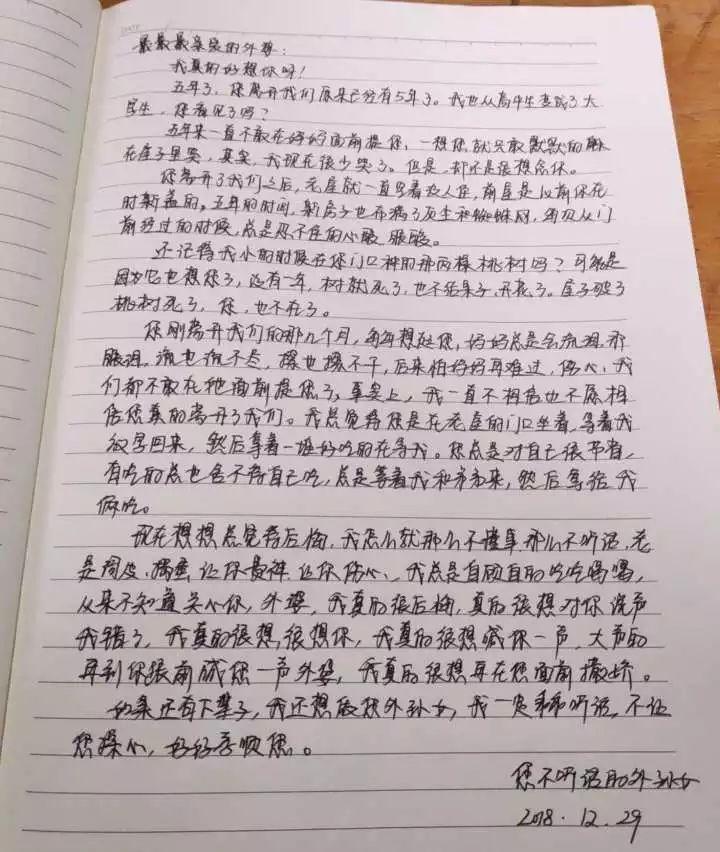 最最最亲爱的外婆：
我真的好想你呀！
五年了，您离开我们原来已经有5年了。我也从高中生变成了大
学生，您看见了吗？
五年来一直不敢在妈妈面前提你，一想您就只敢默默的躲
在屋子里哭，其实，我现在很少哭了。但是，却还是很想念你。
您离开了我们之后，老屋就一直空着没人住，前屋是以前你在
时新盖的。五年的时间，新房子也布满了灰尘和蜘蛛网，每次从门
前经过的时候，总是忍不住的心酸，眼酸。
还记得我小的时候在您门口种的那两棵桃树吗？可能是
因为它也想您了，没有一年，树就死了，也不结果子，开花了。屋子破了
桃树死了，您，也不在了。
您刚离开我们的那几个月，每每想起您，妈妈总是会流泪，那
眼泪，流也流不尽，擦也擦不干，后来怕妈妈再难过，伤心，我
们都不敢在她面前提您了，事实上，我一直不相信也不愿相
信您真的离开了我们。我总觉得您是在老屋的门口坐着，等着我
放学回来，然后拿着一堆好吃的在等我。您总是对自己很节省，
有吃的点也舍不得自己吃，总是等着我和弟弟来，然后拿给我
俩吃。
现在想想总觉得后悔，我怎么就那么不懂事，那么不听话，老
是调皮，捣蛋，让你费神，让你伤心，我总是自顾自的吃吃喝喝，
从来不知道关心你，外婆，我真的很后悔，真的很想对你说声
我错了，我真的很想，很想你，我真的很想喊你一声，大声的
再到你跟前喊您一声外婆，我真的很想再在您面前撒娇。
如果还有下辈子，我还想做您外孙女，我一定乖乖听话，不让
您操心，好好孝顺您。
您不听话的外孙女
2018.12.29